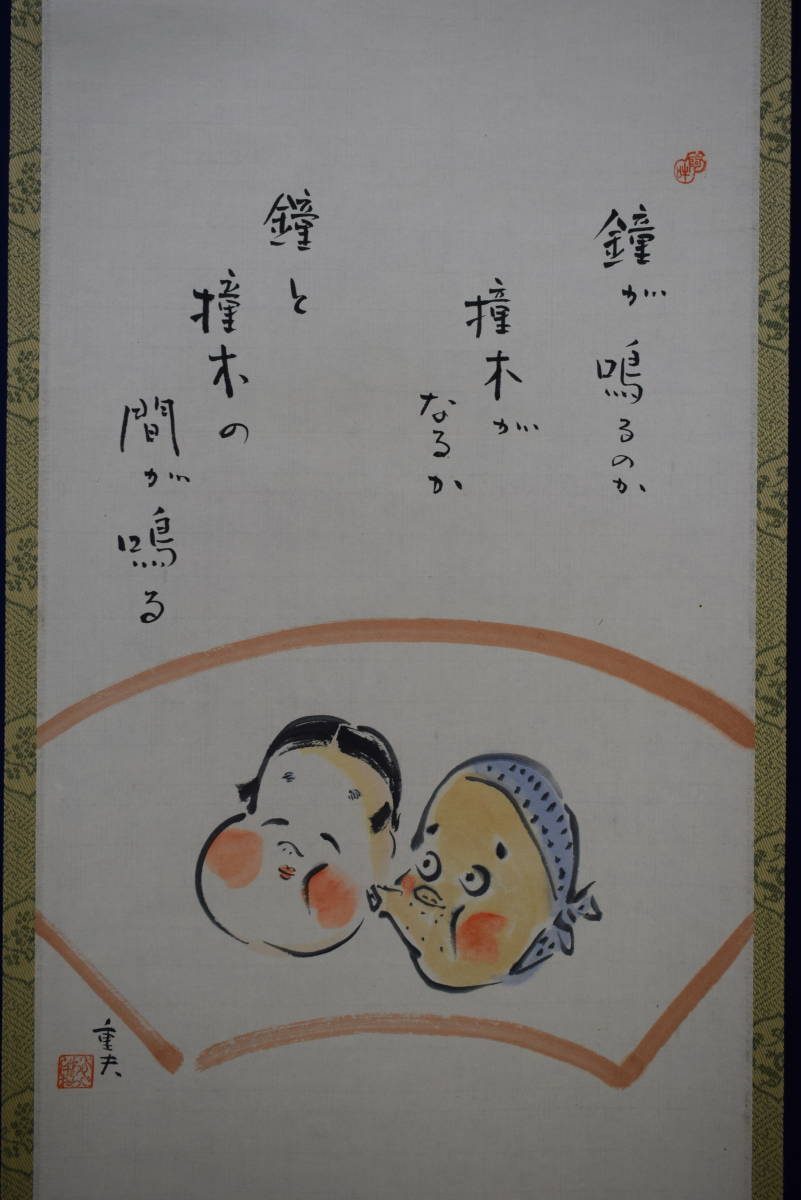 鐘が鳴るのか
撞木が
なるか
鐘と
撞木の
間が鳴る
重夫